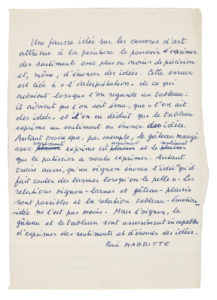 Une fausse idée sur les œuvres d'art
attribue à la peinture le pouvoir d'exprimer
des sentiments avec plus ou moins de précision
et, même, d'énoncer des idées. Cette erreur
est liée à l'interprétation de ce qui
advient lorsque l'on regarde un tableau:
il arrivent que l'on soit ému, que l'on ait
des idées, et l'on en déduit que le tableau
exprime un sentiment ou énonce des idées.
Autant croire que, par exemple, le gâteau mangé
avec plaisir exprime
que le patissier a voulu exprimer. Autant
croire aussi, qu'un oignon énonce l'idée qu'il
fait couler des larmes lorsqu'on le pelle. Les
relations oignon-larmes et gâteau-plaisir
sont possibles et la relation tableau-émotion-
idée ne l'est pas moins. Mais l'oignon, le
gâteau et le tableau sont assurément incapables
d'exprimer des sentiments et d'énoncer des idées.
René MAGRITTE